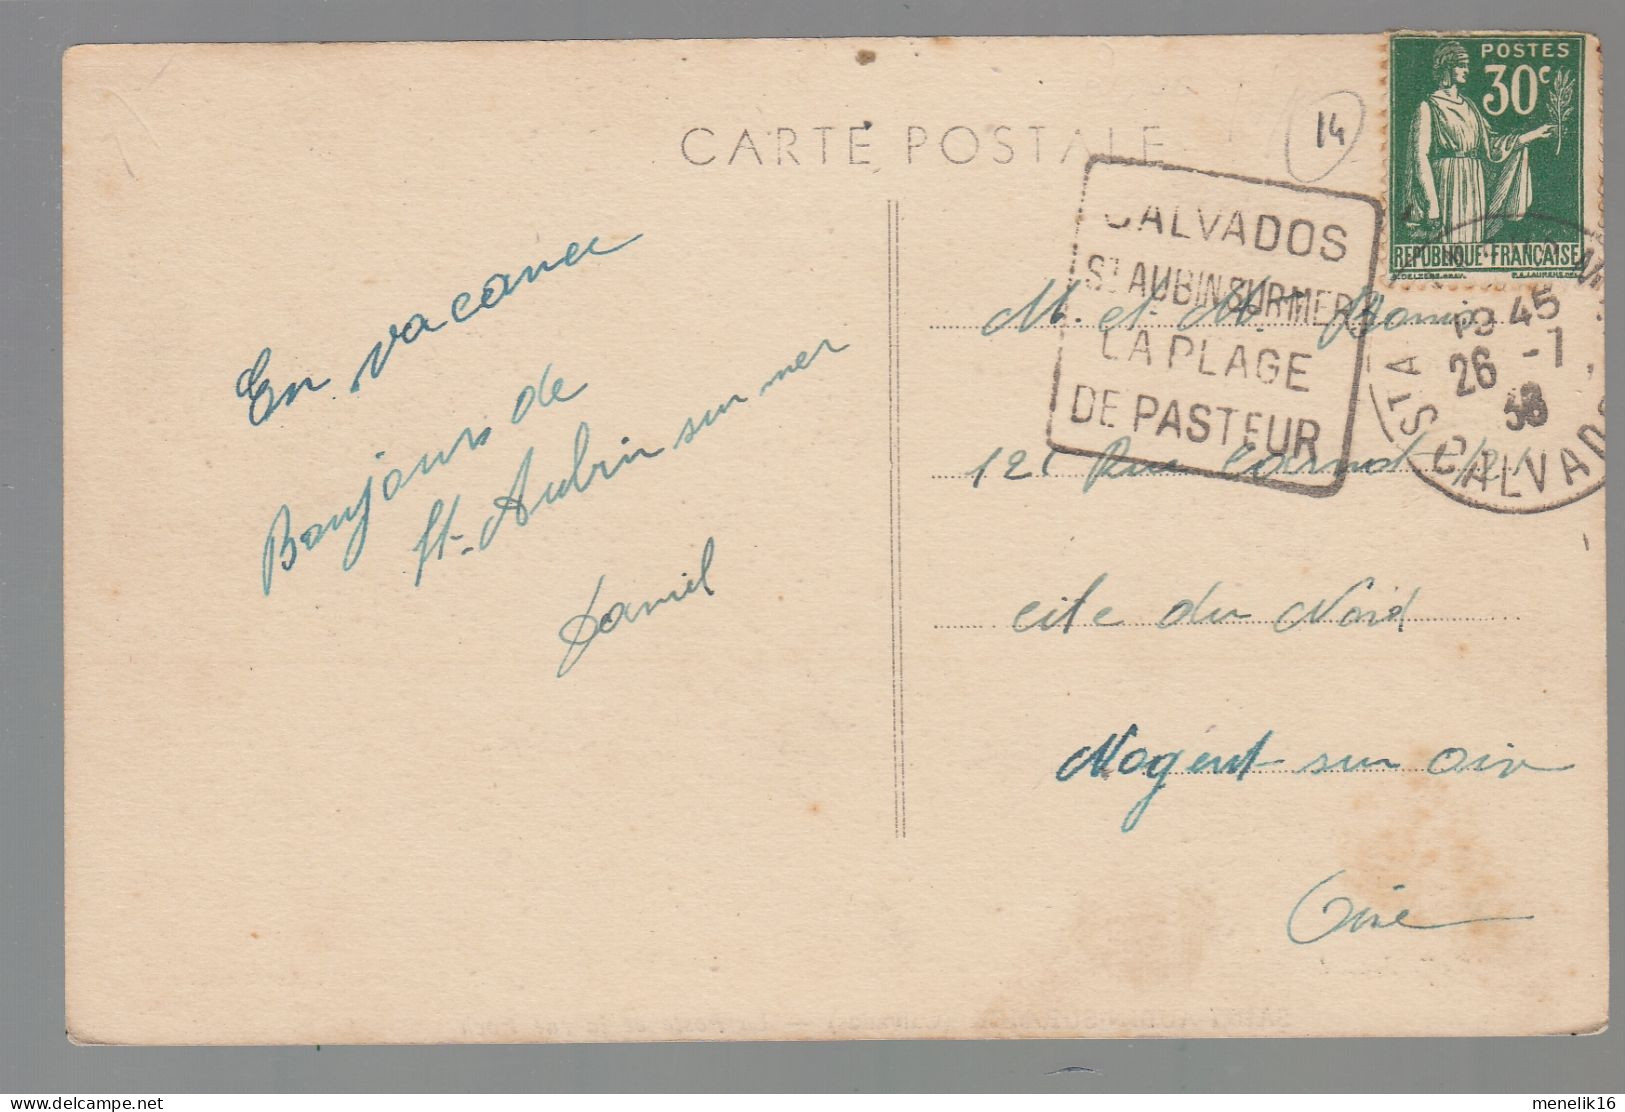 CARTE POSTALE
14
POSTES
30c
REPUBLIQUE FRANÇAISE
CALVADOS
ST AUBIN SUR MER
LA PLAGE
DE PASTEUR
45
26 -7
38
CALVADOS
En vacance
Bonjours de
St. Aubin sur mer
Daniel
M. et Mme
121 Rue Carnot
cite du Nord
Nogent sur oise
Oise
menelik16